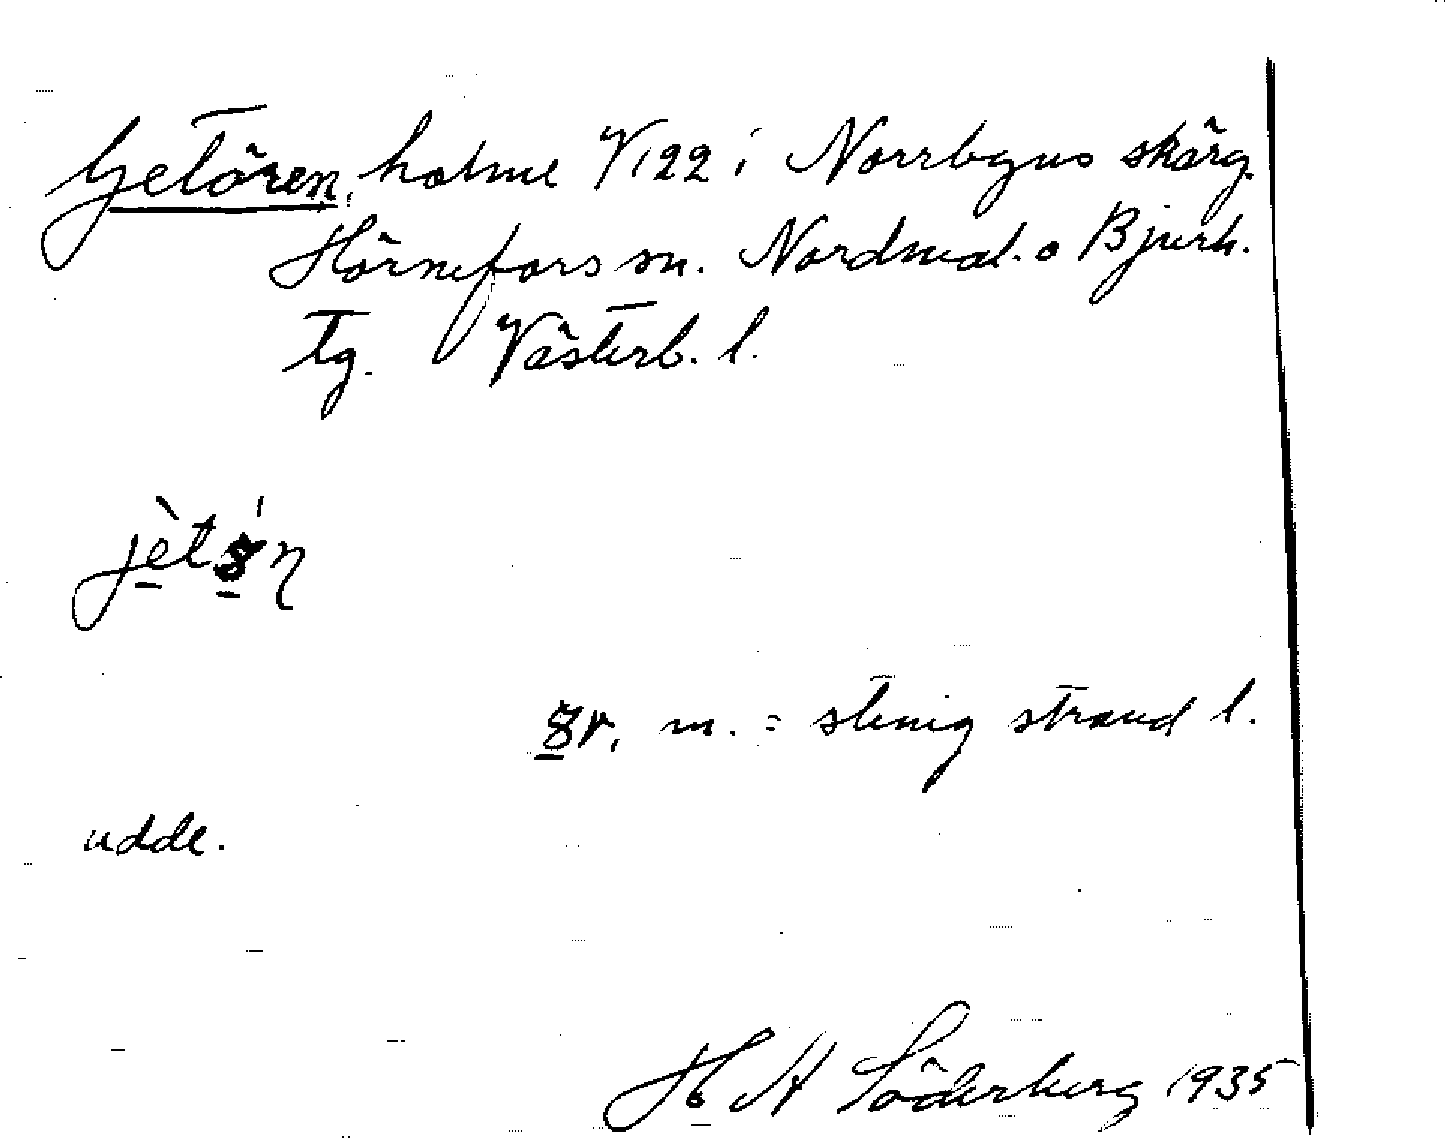 Getören, holme V122 i Norrbyns skärg.
Hörnefors sn. Nordmal. o Bjurh.
tg. Västerb. l.
m. = stenig strand l.
udde.
H A Söderberg 1935